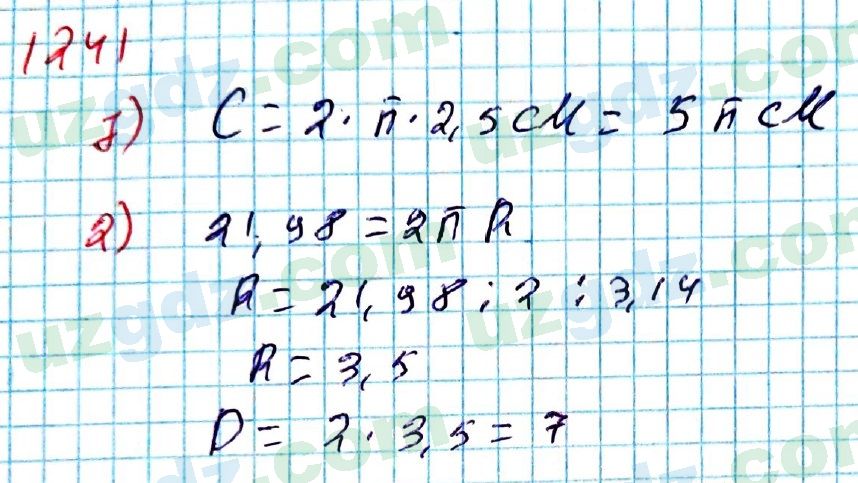 1241
1) C = 2 · π · 2,5 см = 5 π см
2) 21,98 = 2π R
R = 21,98 : 2 : 3,14
R = 3,5
D = 2 · 3,5 = 7
uzgdz.com